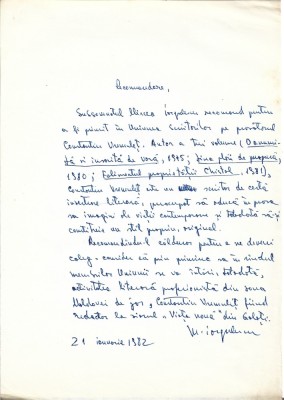 Recomandare,
Subsemnatul Mircea Iorgulescu recomand pentru
a fi primit în Uniunea Scriitorilor pe prozatorul
Constantin Vremuleț. Autor a trei volume (
și însorită de vară, 1975; Ziua ploii de
1980; Falimentul proprietății Christol, 1981),
Constantin Vremuleț este un scriitor de certă
literară, preocupat să aducă în proza
sa imagini ale vieții contemporane și totodată să-și
constituie un stil propriu, original.
Recomandându-l călduros pentru a ne deveni
coleg, consider că prin primirea sa în rândul
membrilor Uniunii se va întări, totodată,
activitatea literară profesionistă din zona
Moldovei de jos, Constantin Vremuleț fiind
redactor la ziarul „Viața nouă" din Galați.
M. Iorgulescu
21 ianuarie 1982